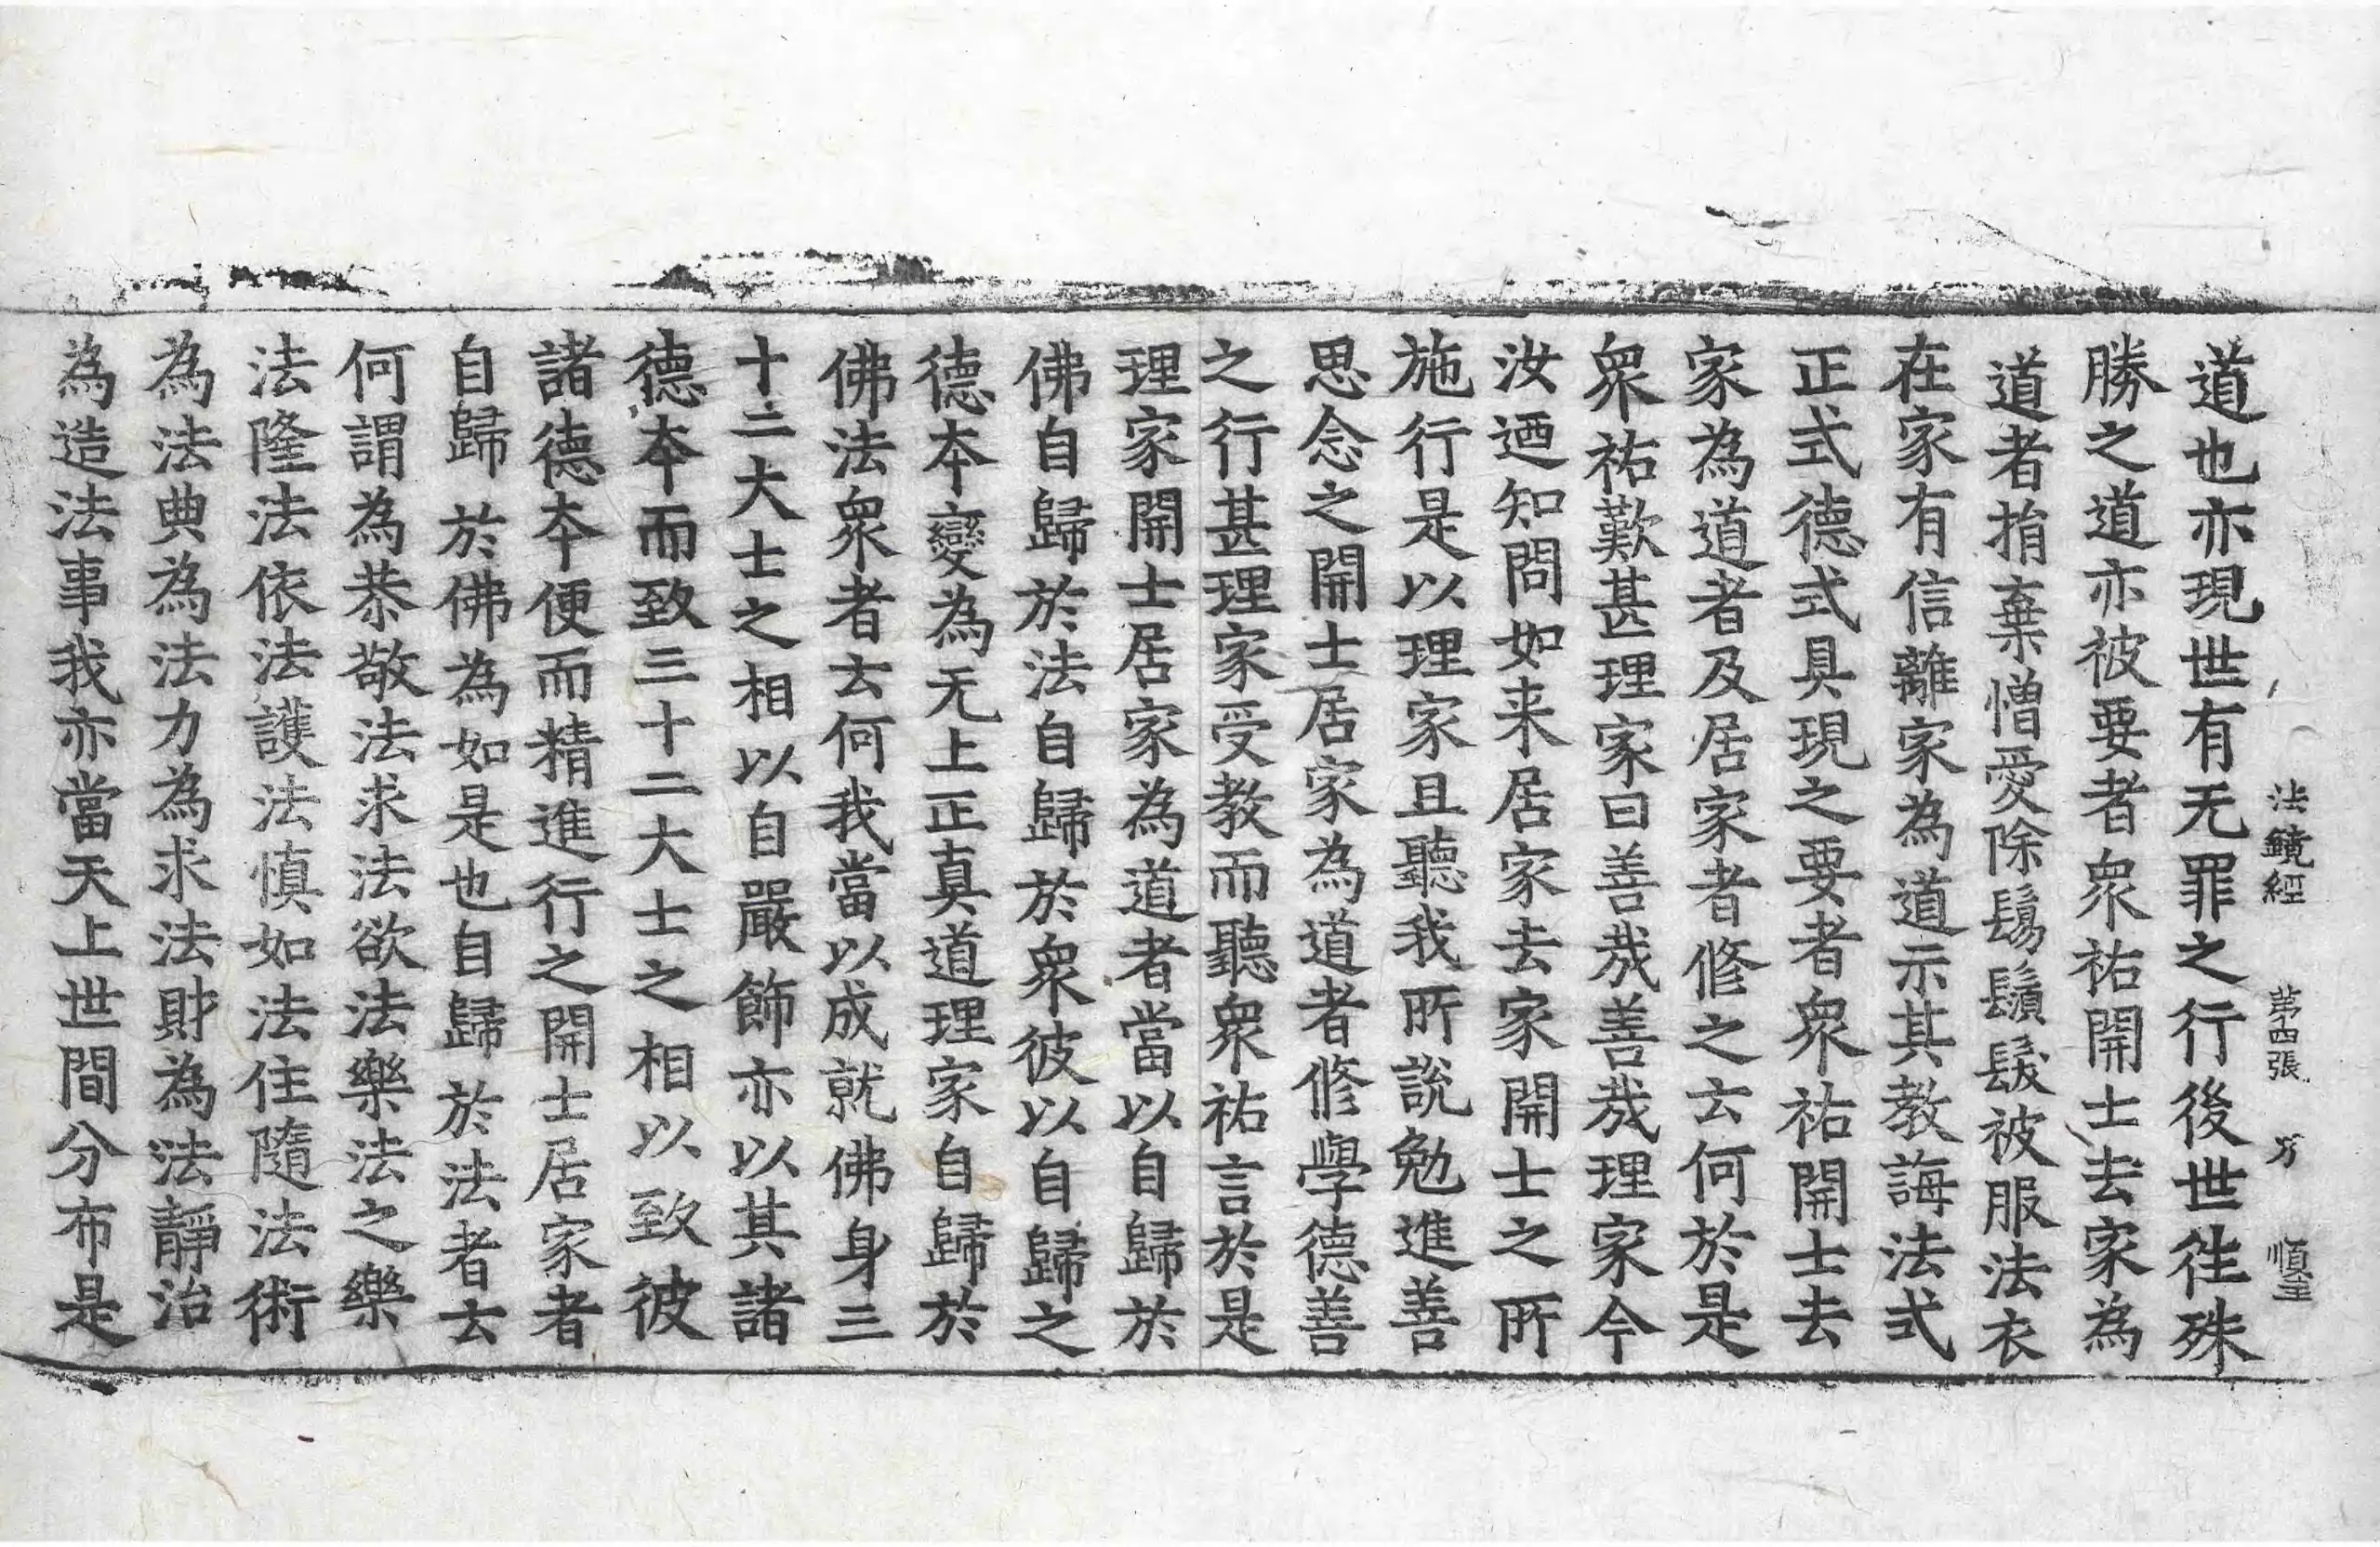 法鏡經 第四張 万
道也亦現世有无罪之行後世徃殊
勝之道亦被要者衆祐開士去家為
道者捐棄憎愛除鬄鬚髮被服法衣
在家有信離家為道示其教誨法式
正式德式具現之要者衆祐開士去
家為道者及居家者修之云何於是
衆祐歎甚理家曰善㢤善㢤理家今
汝迺知問如来居家去家開士之所
施行是以理家且聽我所說勉進善
思念之開士居家為道者修學德善
之行甚理家受教而聽衆祐言於是
理家開士居家為道者當以自歸於
佛自歸於法自歸於衆彼以自歸之
德本變為无上正真道理家自歸於
佛法衆者云何我當以成就佛身三
十二大士之相以自嚴飾亦以其諸
德本而致三十二大士之相以致彼
諸德本便而精進行之開士居家者
自歸於佛為如是也自歸於法者云
何謂為恭敬法求法欲法樂法之樂
法隆法依法護法慎如法住隨法術
為法典為法力為求法財為法靜治
為造法事我亦當天上世間分布是